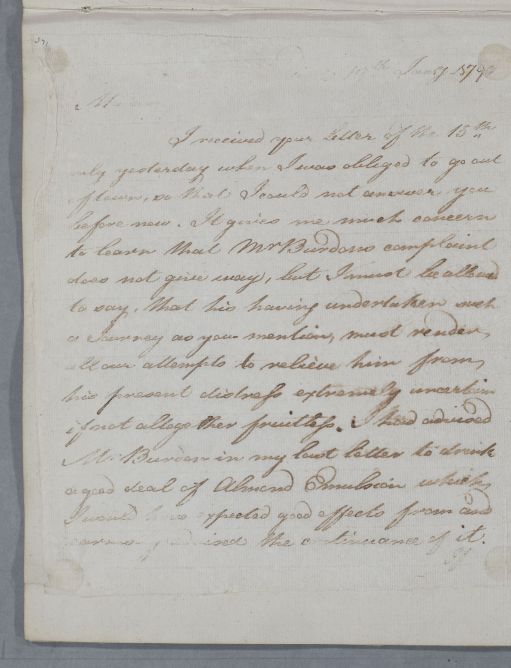 19th Jan'y 179
Madam
I received your letter of the 15th
only yesterday when I was obliged to go out
of town, so that I could not answer you
before now. It gives me much concern
to learn that Mr Burdons complaint
does not give way, but I must be allowed
to say, that his having undertaken such
a Journey as you mention, must render,
all our attempts to relieve him from,
his present distress extremely uncertain
if not altogether fruitless. I had advised
Mr Burdon in my last letter to drink
a good deal of Almond Emulsion which,
I would have expected good effects from and
the continuance of it.